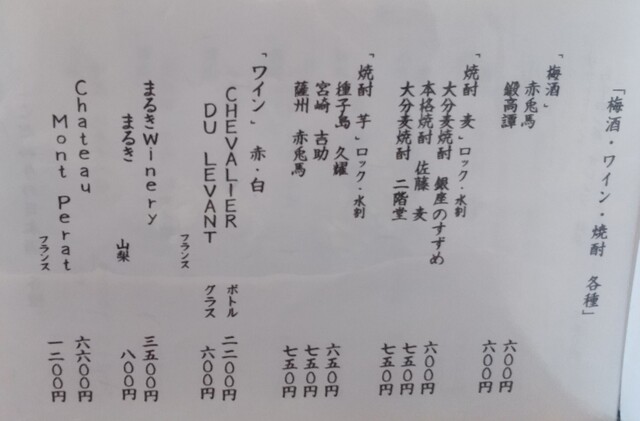 「梅酒・ワイン・焼酎 各種」
「梅酒」
赤兎馬 六〇〇円
鍛高譚 六〇〇円
「焼酎 麦」ロック・水割
大分麦焼酎 銀座のすずめ 六〇〇円
本格焼酎 佐藤 麦 七五〇円
大分麦焼酎 二階堂 七五〇円
「焼酎 芋」ロック・水割
種子島 久耀 六五〇円
宮崎 古助 七五〇円
薩州 赤兎馬 七五〇円
「ワイン」 赤・白
CHEVALIER ボトル 二二〇〇円
DU LEVANT グラス 六〇〇円
フランス
まるきWinery 三五〇〇円
まるき 山梨 八〇〇円
Chateau 六六〇〇円
Mont Perat フランス 一二〇〇円